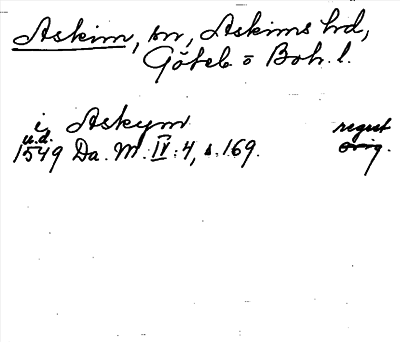 Askim, sn, Askims hd,
Göteb o Boh. l.
i Askym regest
u.d.
1549 Da. M. IV:4, s. 169. orig.